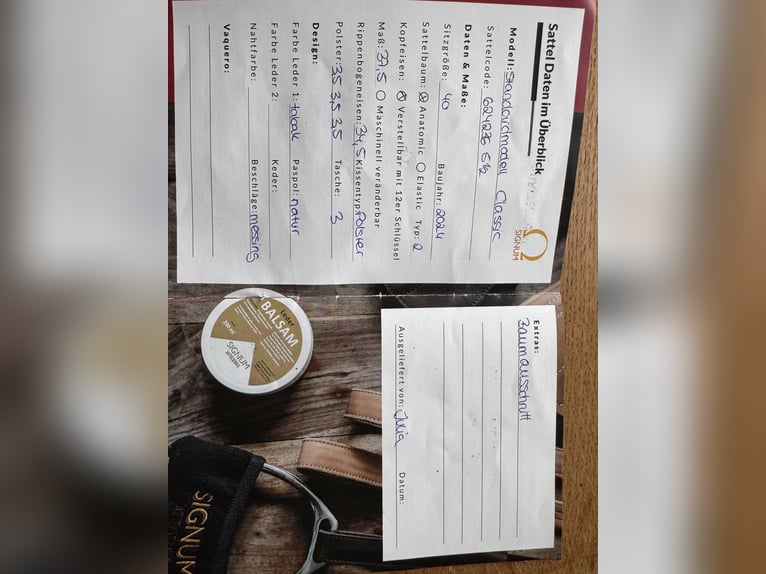 Sattel Daten im Überblick
SIGNUM
Modell: Standardmodell Classic
Sattelcode: 624236 S½
Daten & Maße:
Sitzgröße: 40 Baujahr: 2024
Sattelbaum: Anatomic Elastic Typ: 2
Kopfeisen: Verstellbar mit 12er Schlüssel
Maß: 37,5 Maschinell veränderbar
Rippenbogeneisen: 34,5 Kissentyp: Polster
Polster: 3,5 3,5 3,5 Tasche: 3
Design:
Farbe Leder 1: tabak Paspol: natur
Farbe Leder 2: Keder:
Nahtfarbe: Beschläge: messing
Vaquero:
Extras:
Baumausschnitt
Ausgeliefert von: Julia Datum:
Leder
BALSAM
200 ml
SIGNUM
SIGNUM